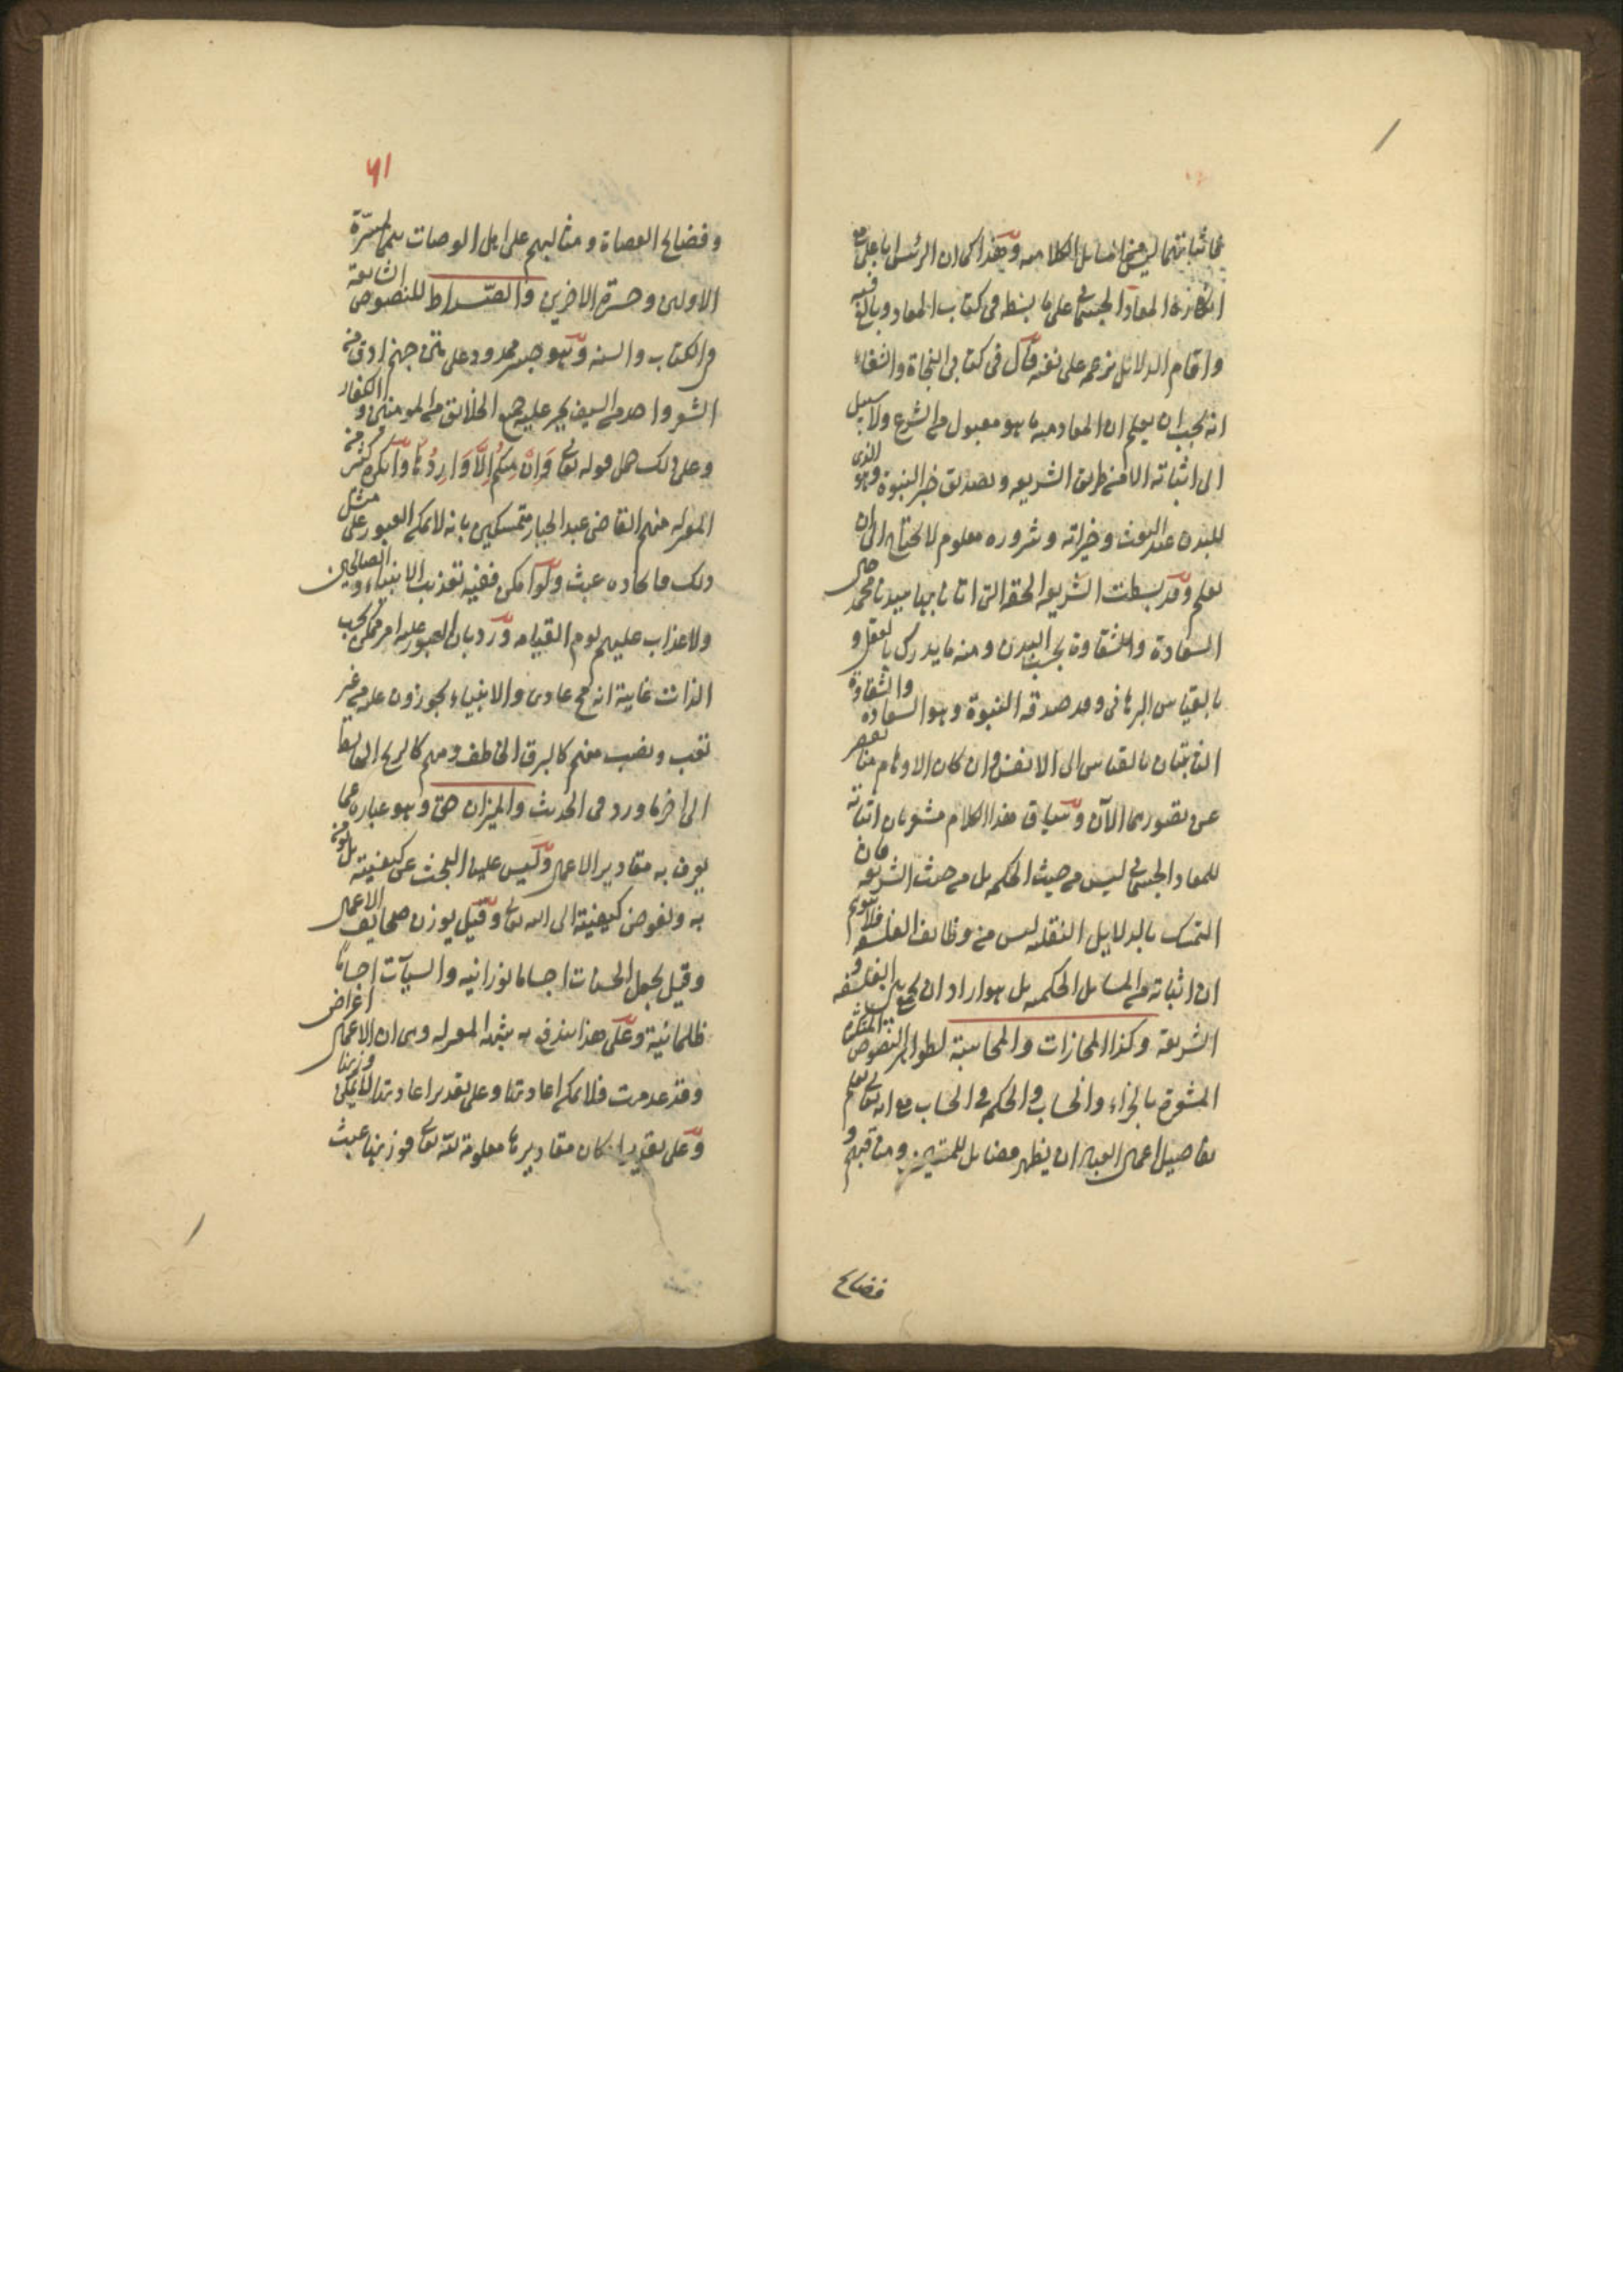 فاثباتهما ليس من المسائل الكلاميه وهذا كما ان الرئيس ابا على مع
انكاره المعاد الجسمانى على ما بسطه فى كتاب المعاد وبالغ فيه
واقام الدلائل بزعمه على نفيه قال فى كتابى النجاة والشفاء
انه يجب ان يعلم ان المعاد منه ما هو مقبول من الشرع ولا سبيل
الى اثباته الا من طريق الشريعه وتصديق خبر النبوة وهو الذى
للبدن عند البعث وخيراته وشروره معلوم لا يحتاج الى ان
يعلم وقد بسطت الشريعه الحقه التى اتانا بها سيدنا محمد حال
السعادة والشقاوة بحسب البدن ومنه ما يدرك بالعقل و
بالقياس البرهانى وقد صدقه النبوة وهو السعاده والشقاوة
الثابتتان بالقياس الى الانفس وان كان الاوهام منا تقصر
عن تصورهما الآن وسياق هذا الكلام مشعر بان اثباته
للمعاد الجسمانى ليس من حيث الحكمه بل من حيث الشريعه فان
التمسك بالدلايل النقليه ليس من وظائف الفلسفه فلا يتوهم
ان اثباته من المسائل الحكميه بل هو اراد ان يجمع بين الفلسفه و
الشريعه وكذا المجازات والمحاسبة لظواهر النصوص المتكثرة
المشعرة بالجزاء والحساب والحكمه فى الحساب مع انه تعالى يعلم
تفاصيل اعمال العباد ان يظهر فضائل المتقين ومناقبهم و
فضايح
٦١
وفضايح العصاة ومثالبهم على اهل العرصات تتميما لمسرة
الاولين وحسرة الاخرين والصراط للنصوص الشايعة
فى الكتاب والسنه وهو جسر ممدود على متن جهنم ادق من
الشعر واحد من السيف يجوز عليه جميع الخلائق من المومنين و الكفار
وعلى ذلك حمل قوله تعالى وَاِنْ مِنكُمْ اِلَّا وَارِدُهَا وانكره كثير من
المعتزله منهم القاضى عبد الجبار متمسكين بانه لا يمكن العبور على مثل
ذلك فايجاده عبث ولو امكن ففيه تعذيب الانبياء و الصالحين
ولا عذاب عليهم يوم القيامه ورد بان العبور عليه امر ممكن بحسب
الذات غايته انه محال عادى والانبياء يجوزون عليه من غير
تعب ونصب فمنهم كالبرق الخاطف ومنهم كالريح الهابة
الى اخر ما ورد فى الحديث والميزان حق وهو عباره عما
يعرف به مقادير الاعمال وليس علينا البحث عن كيفيته بل نومن
به ونفوض كيفيته الى الله تعالى وقيل يوزن صحايف الاعمال
وقيل يجعل الحسنات اجساما نورانيه والسيآت اجساما
ظلمانية وعلى هذا يندفع به شبهة المعتزله وهى ان الاعمال اعراض
وقد عدمت فلا يمكن اعادتها وعلى تقدير اعادتها لا يمكن وزنها
وعلى تقدير امكان مقاديرها معلومة لله تعالى فوزنها عبث